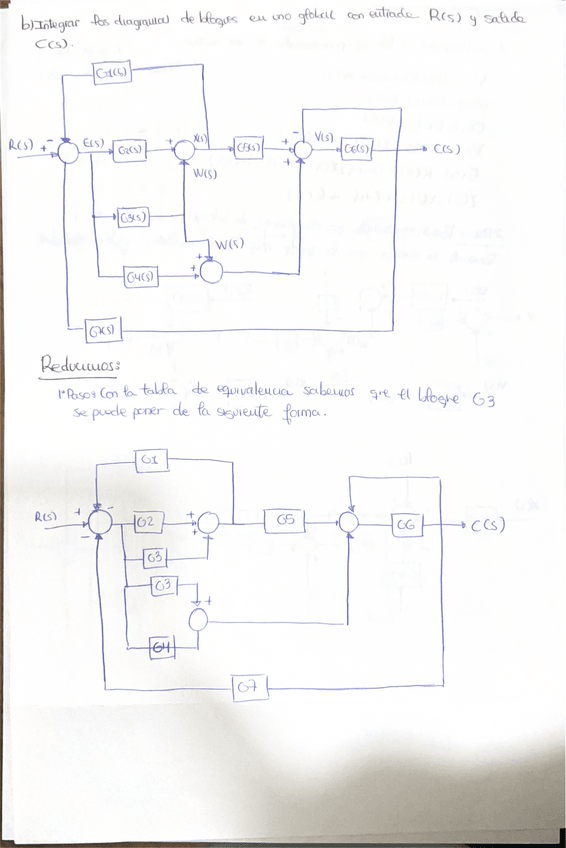 b) Integrar los diagramas de bloques en uno global con entrada R(s) y salida
C(s).
G1(s)
R(s) + - E(s) G2(s) + X(s) G5(s) + - V(s) G6(s) C(s)
+
W(s)
G3(s)
W(s)
+
G4(s) +
G7(s)
Reducimos:
1º Paso: Con la tabla de equivalencia sabemos que el bloque G3
se puede poner de la siguiente forma.
G1
R(s) + - G2 + G5 G6 C(s)
- +
G3
G3
+
G4
G7